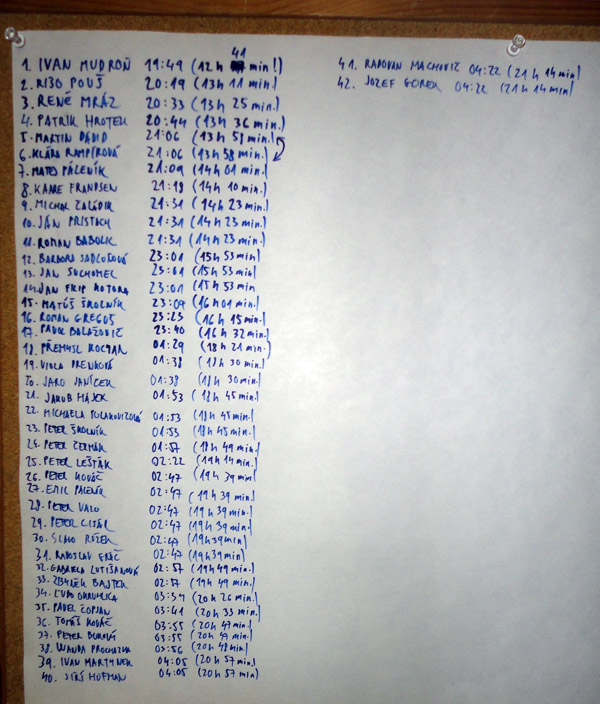 41
1. IVAN MUDROŇ 19:49 (12 h min!)
2. RIŠO POUŠ 20:19 (13 h 11 min.)
3. RENÉ MRÁZ 20:33 (13 h 25 min.)
4. PATRIK HROTEK 20:44 (13 h 36 min.)
5. MARTIN DÁVID 21:06 (13 h 58 min.)
6. KLÁRA RAMPÍROVÁ 21:06 (13 h 58 min.)
7. MATEJ PÁLENÍK 21:09 (14 h 01 min.)
8. KAARE FRANDSEN 21:18 (14 h 10 min.)
9. MICHAL 21:31 (14 h 23 min.)
10. JÁN PRISTACH 21:31 (14 h 23 min.)
11. ROMAN BABOLIC 21:31 (14 h 23 min.)
12. BARBORA 23:01 (15 h 53 min)
13. JAN SUCHOMEL 23:01 (15 h 53 min
14. JAN FILIP KOTORA 23:01 (15 h 53 min
15. MATÚŠ ŠKOLNÍK 23:09 (16 h 01 min.)
16. ROMAN GREGUŠ 23:23 (16 h 15 min.)
17. PAVOL BALAŽOVIČ 23:40 (16 h 32 min.)
18. PŘEMYSL KOCYAN 01:29 (18 h 21 min.)
19. VIOLA 01:38 (18 h 30 min.)
20. JARO JANÍČEK 01:38 (18 h 30 min.)
21. JAKUB HÁJEK 01:53 (18 h 45 min.)
22. MICHAELA POLAKOVIČOVÁ 01:53 (18 h 45 min.)
23. PETER ŠKOLNÍK 01:53 (18 h 45 min.)
24. PETR ČERMÁK 01:57 (18 h 49 min.)
25. PETER LEŠŤÁK 02:22 (19 h 14 min.)
26. PETER KOVÁČ 02:47 (19 h 39 min)
27. EMIL PÁLENÍK 02:47 (19 h 39 min.)
28. PETER VALO 02:47 (19 h 39 min.)
29. PETER 02:47 (19 h 39 min.)
30. SLAVO RUŽEK 02:47 (19 h 39 min)
31. RADOSLAV 02:47 (19 h 39 min)
32. GABRIELA LUTIŠANOVÁ 02:57 (19 h 49 min.)
33. ZBYNEK BAJTEK 02:57 (19 h 49 min.)
34. 03:34 (20 h 26 min.)
35. PAVEL ČOPJAN 03:41 (20 h 33 min.)
36. TOMÁŠ KOVÁČ 03:55 (20 h 47 min.)
37. PETER 03:55 (20 h 47 min.)
38. WANDA PROCHAZKA 03:56 (20 h 48 min)
39. IVAN MARTYNEK 04:05 (20 h 57 min.)
40. JIŘÍ HOFMAN 04:05 (20 h 57 min)
41. RADOVAN MACHOVIČ 04:22 (21 h 14 min)
42. JOZEF GOREK 04:22 (21 h 14 min)